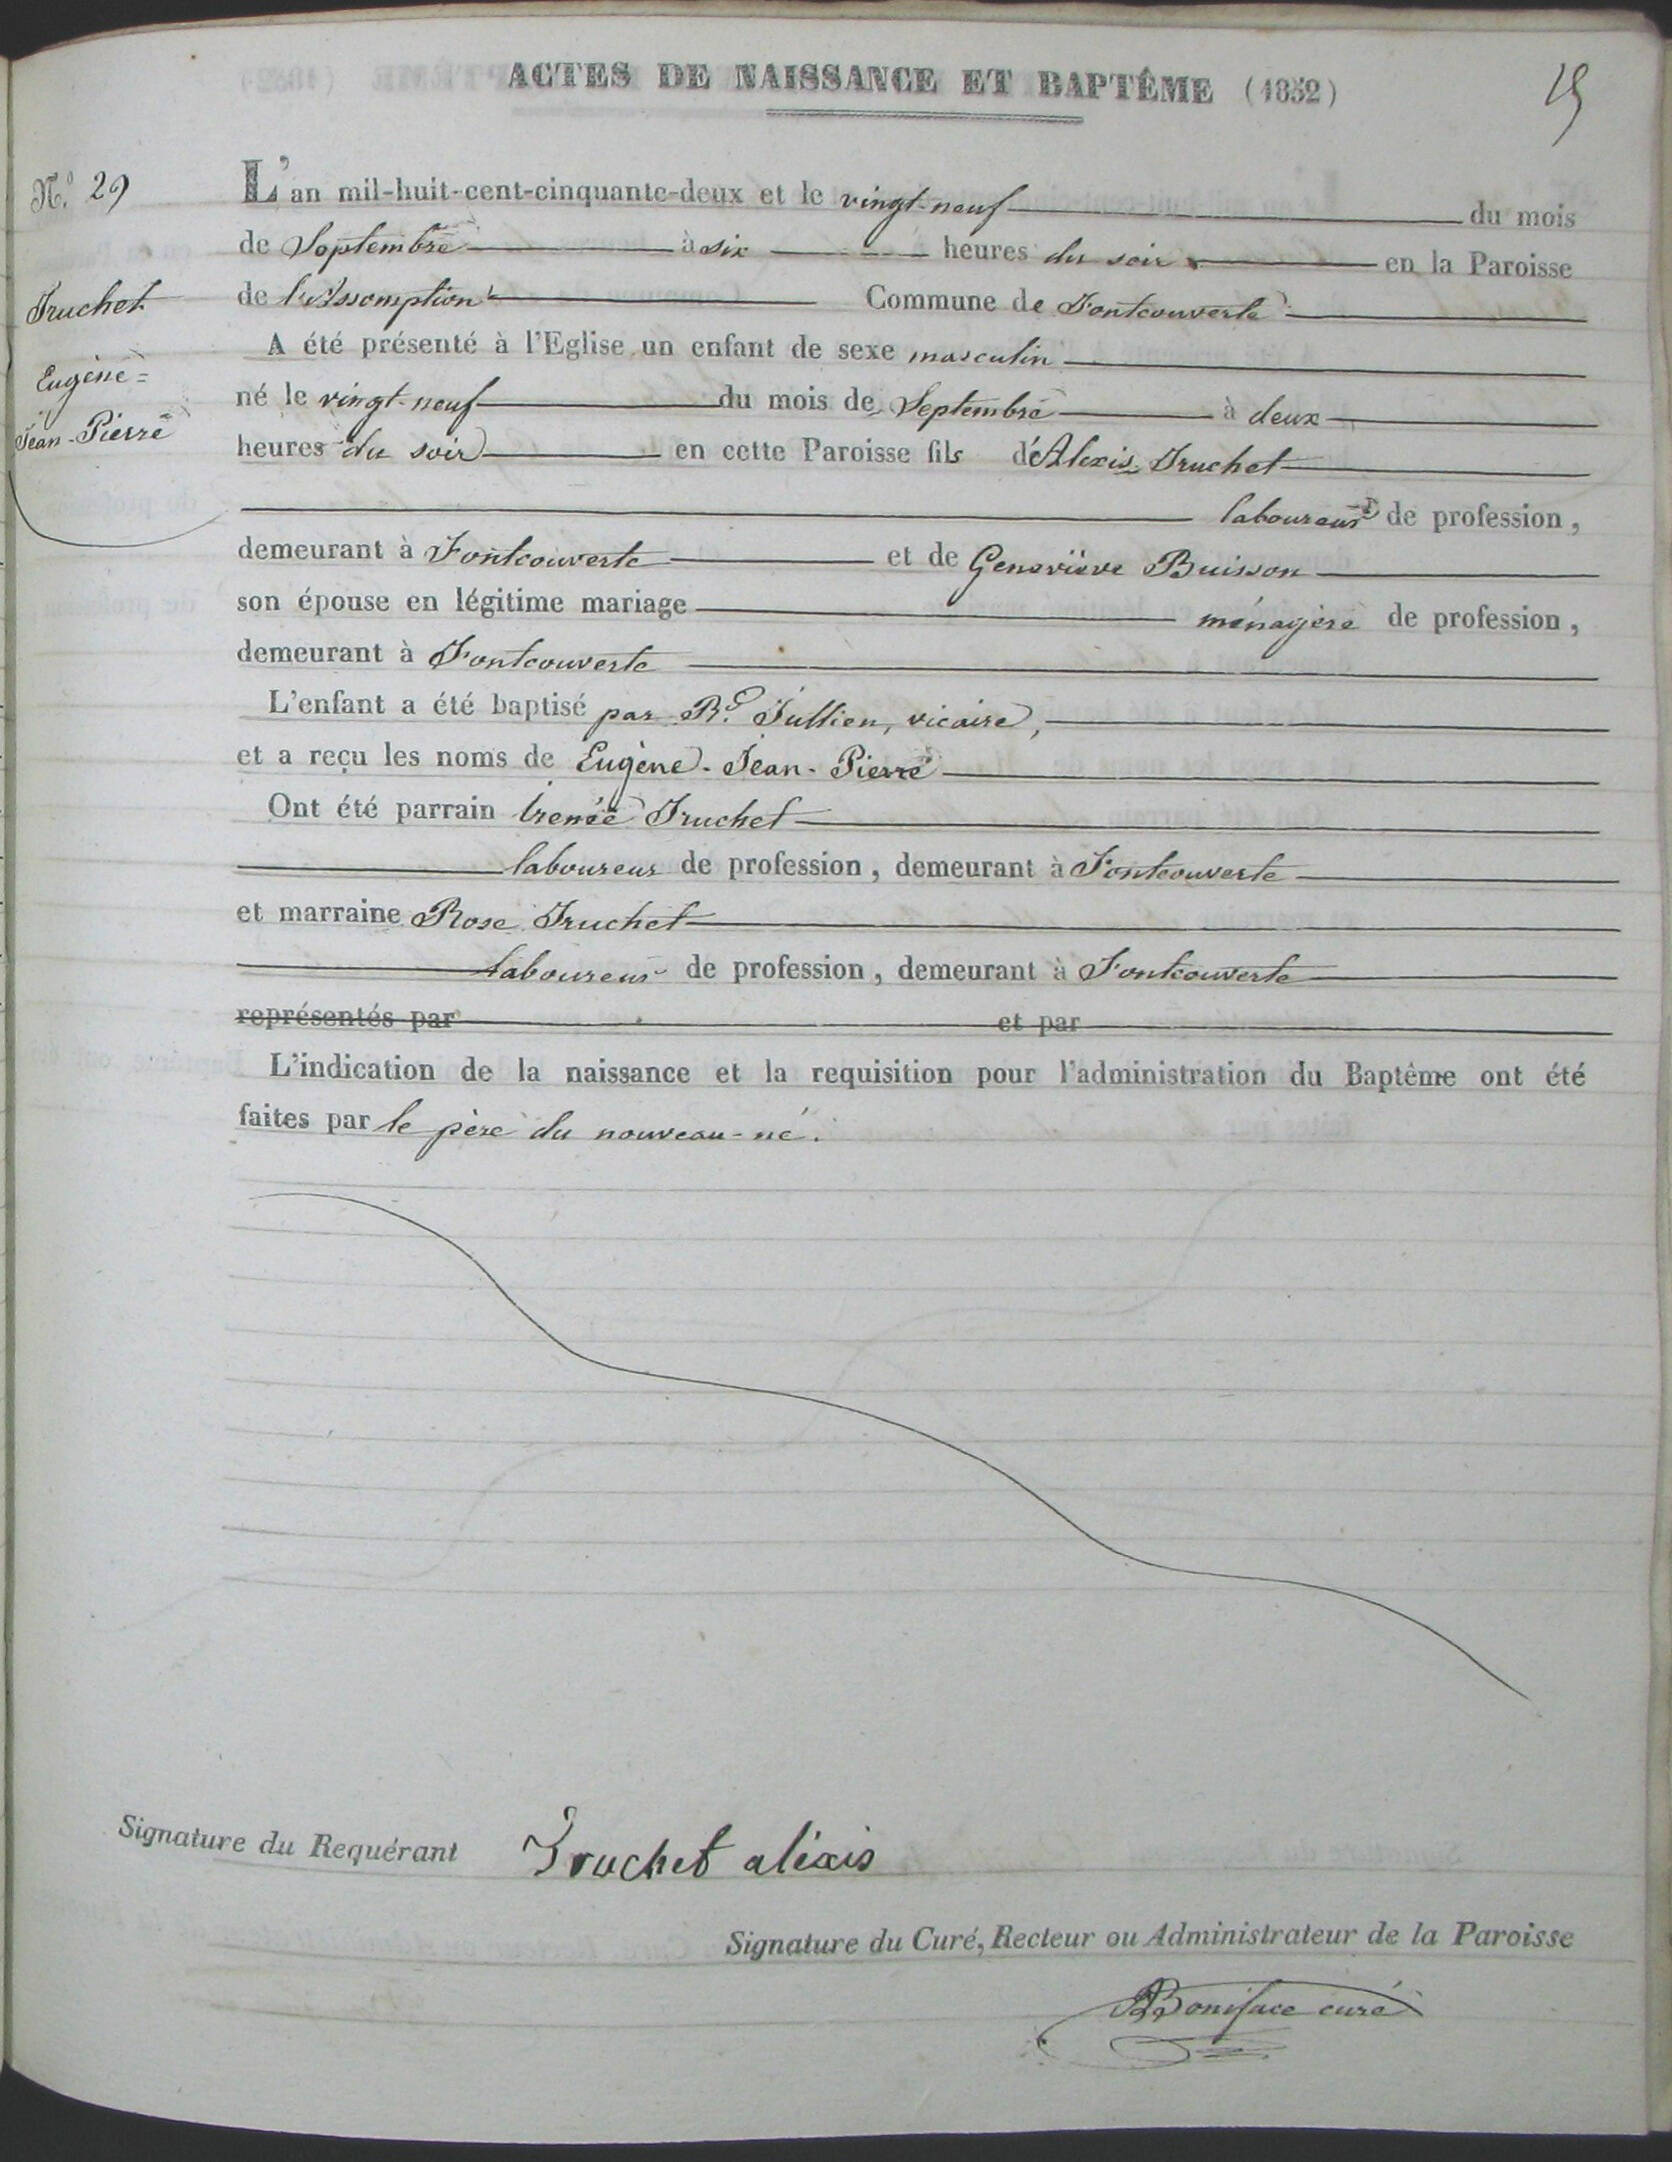 ACTES DE NAISSANCE ET BAPTÊME (1852)
N.o 29
Truchet
Eugène=
Jean-Pierre
L'an mil-huit-cent-cinquante-deux et le vingt-neuf du mois
de Septembre à six heures du soir en la Paroisse
de l'Assomption Commune de Fontcouverte
A été présenté à l'Eglise un enfant de sexe masculin
né le vingt-neuf du mois de Septembre à deux
heures du soir en cette Paroisse fils d'Alexis Truchet
laboureur de profession,
demeurant à Fontcouverte et de Geneviève Buisson
son épouse en légitime mariage ménagère de profession,
demeurant à Fontcouverte
L'enfant a été baptisé par Rd. Jullien, vicaire,
et a reçu les noms de Eugène-Jean-Pierre
Ont été parrain Irenée Truchet
laboureur de profession, demeurant à Fontcouverte
et marraine Rose Truchet
laboureur de profession, demeurant à Fontcouverte
représentés par et par
L'indication de la naissance et la requisition pour l'administration du Baptême ont été
faites par le père du nouveau-né.
Signature du Requérant Truchet aléxis
Signature du Curé, Recteur ou Administrateur de la Paroisse
Boniface curé